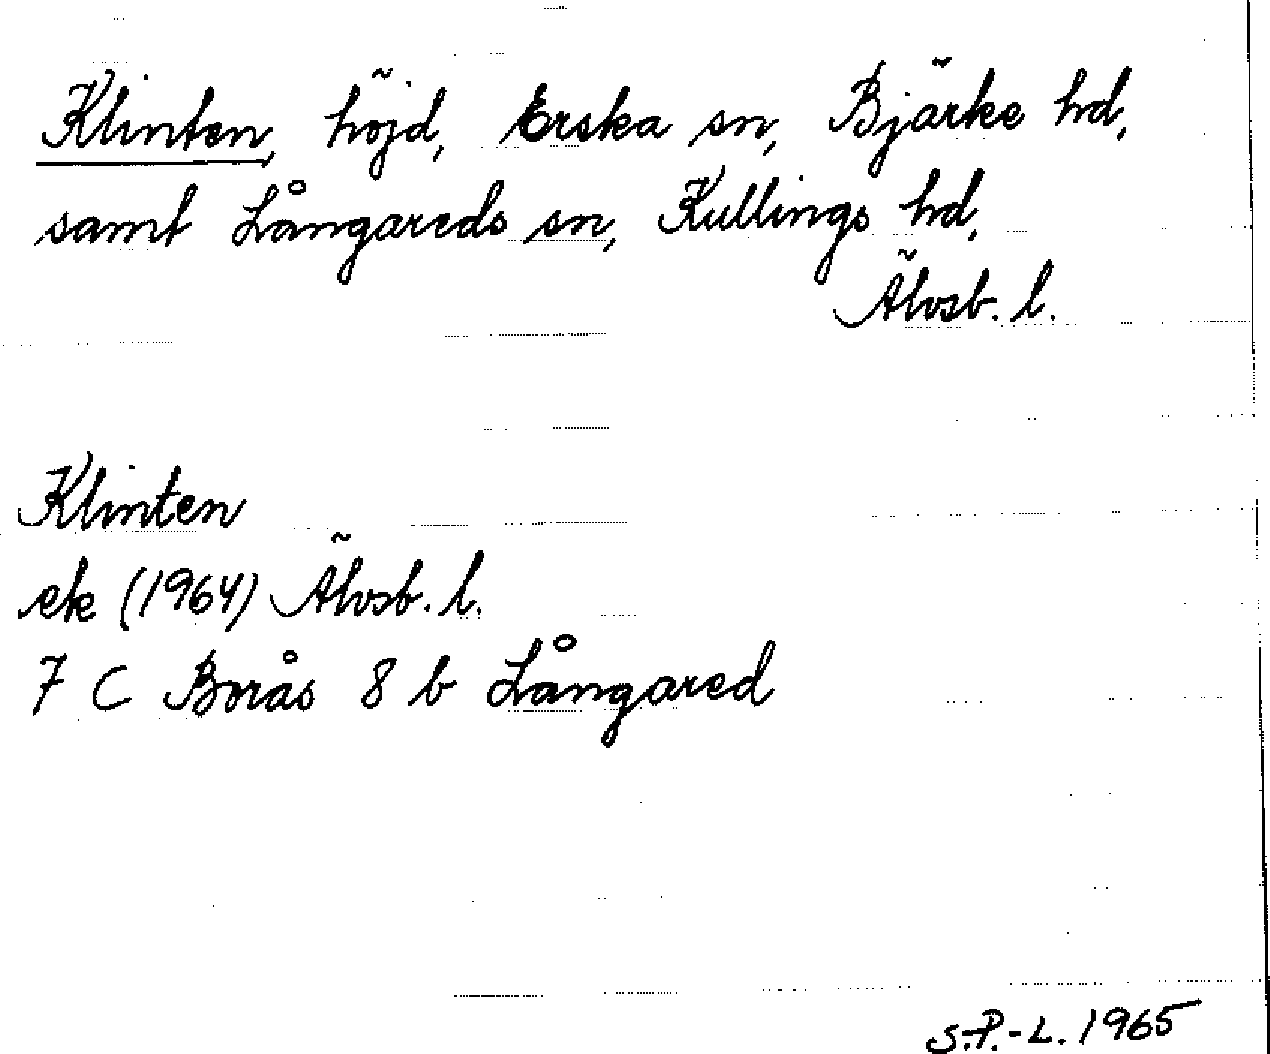 Klinten, höjd, Erska sn, Bjärke hd,
samt Långareds sn, Kullings hd,
Älvsb. l.
Klinten
ek (1964) Älvsb. l.
7 C Borås 8 b Långared
S.P.-L. 1965